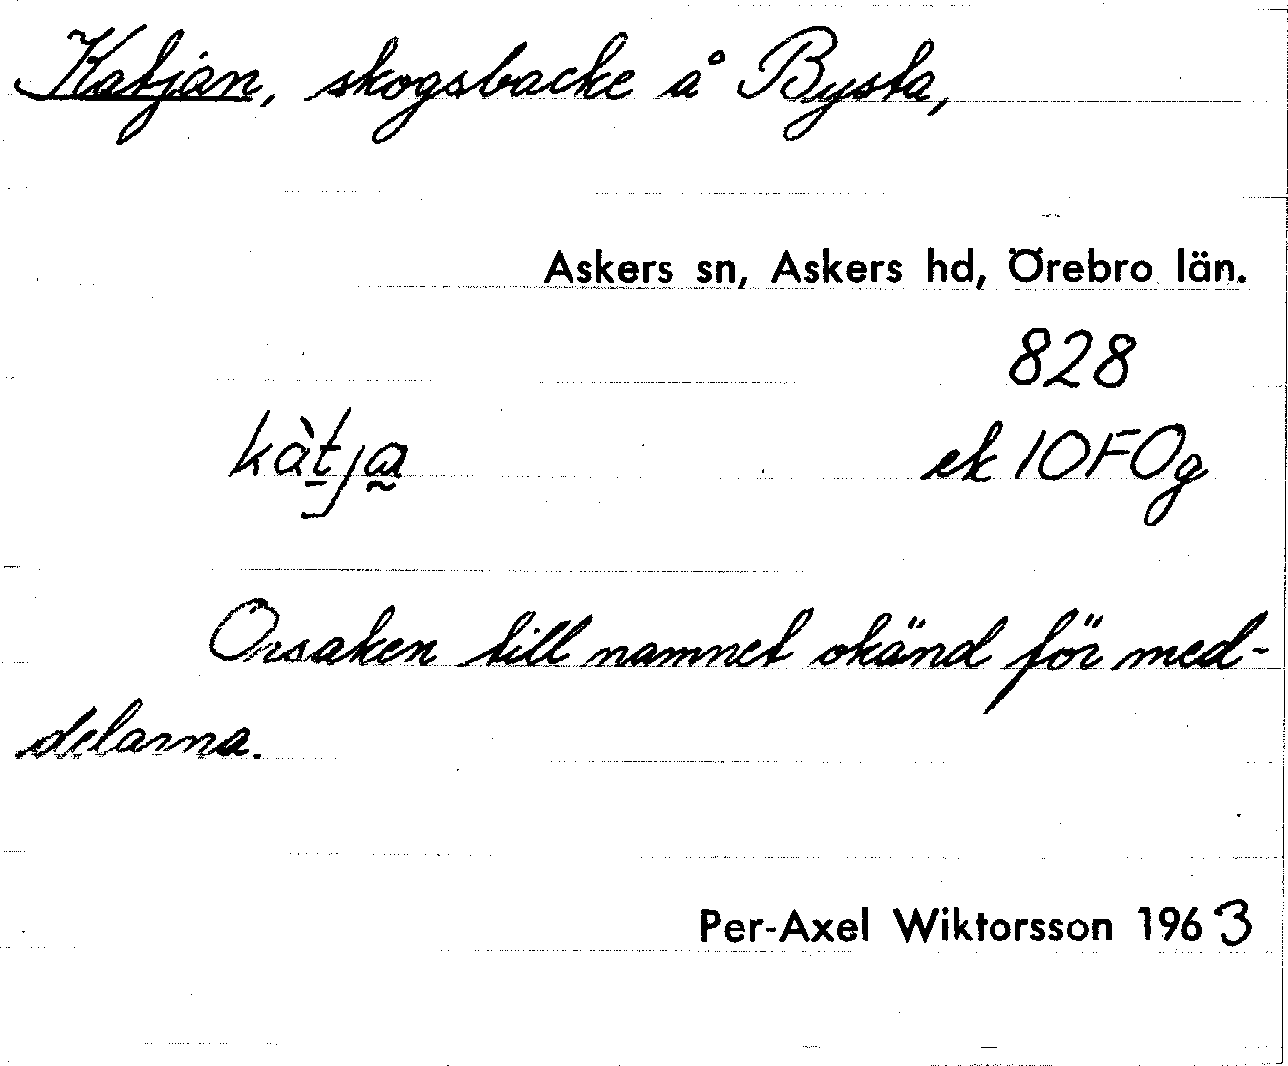 Katjan, skogsbacke å Bysta,
Askers sn, Askers hd, Örebro län.
828
kàtja
ek 10F0g
Orsaken till namnet okänd för med-
delarna.
Per-Axel Wiktorsson 1963